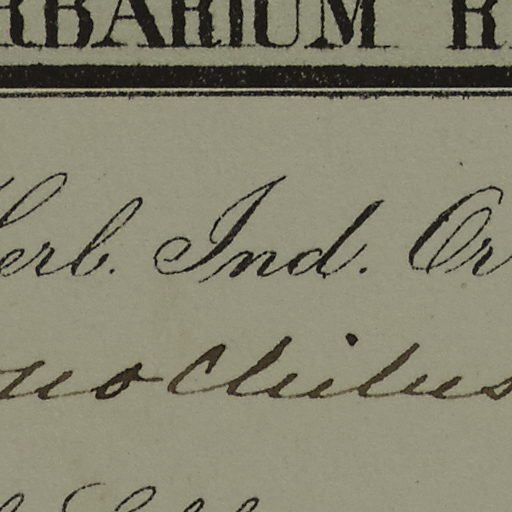 RBARIUM R
Herb. Ind. Or
nochilus